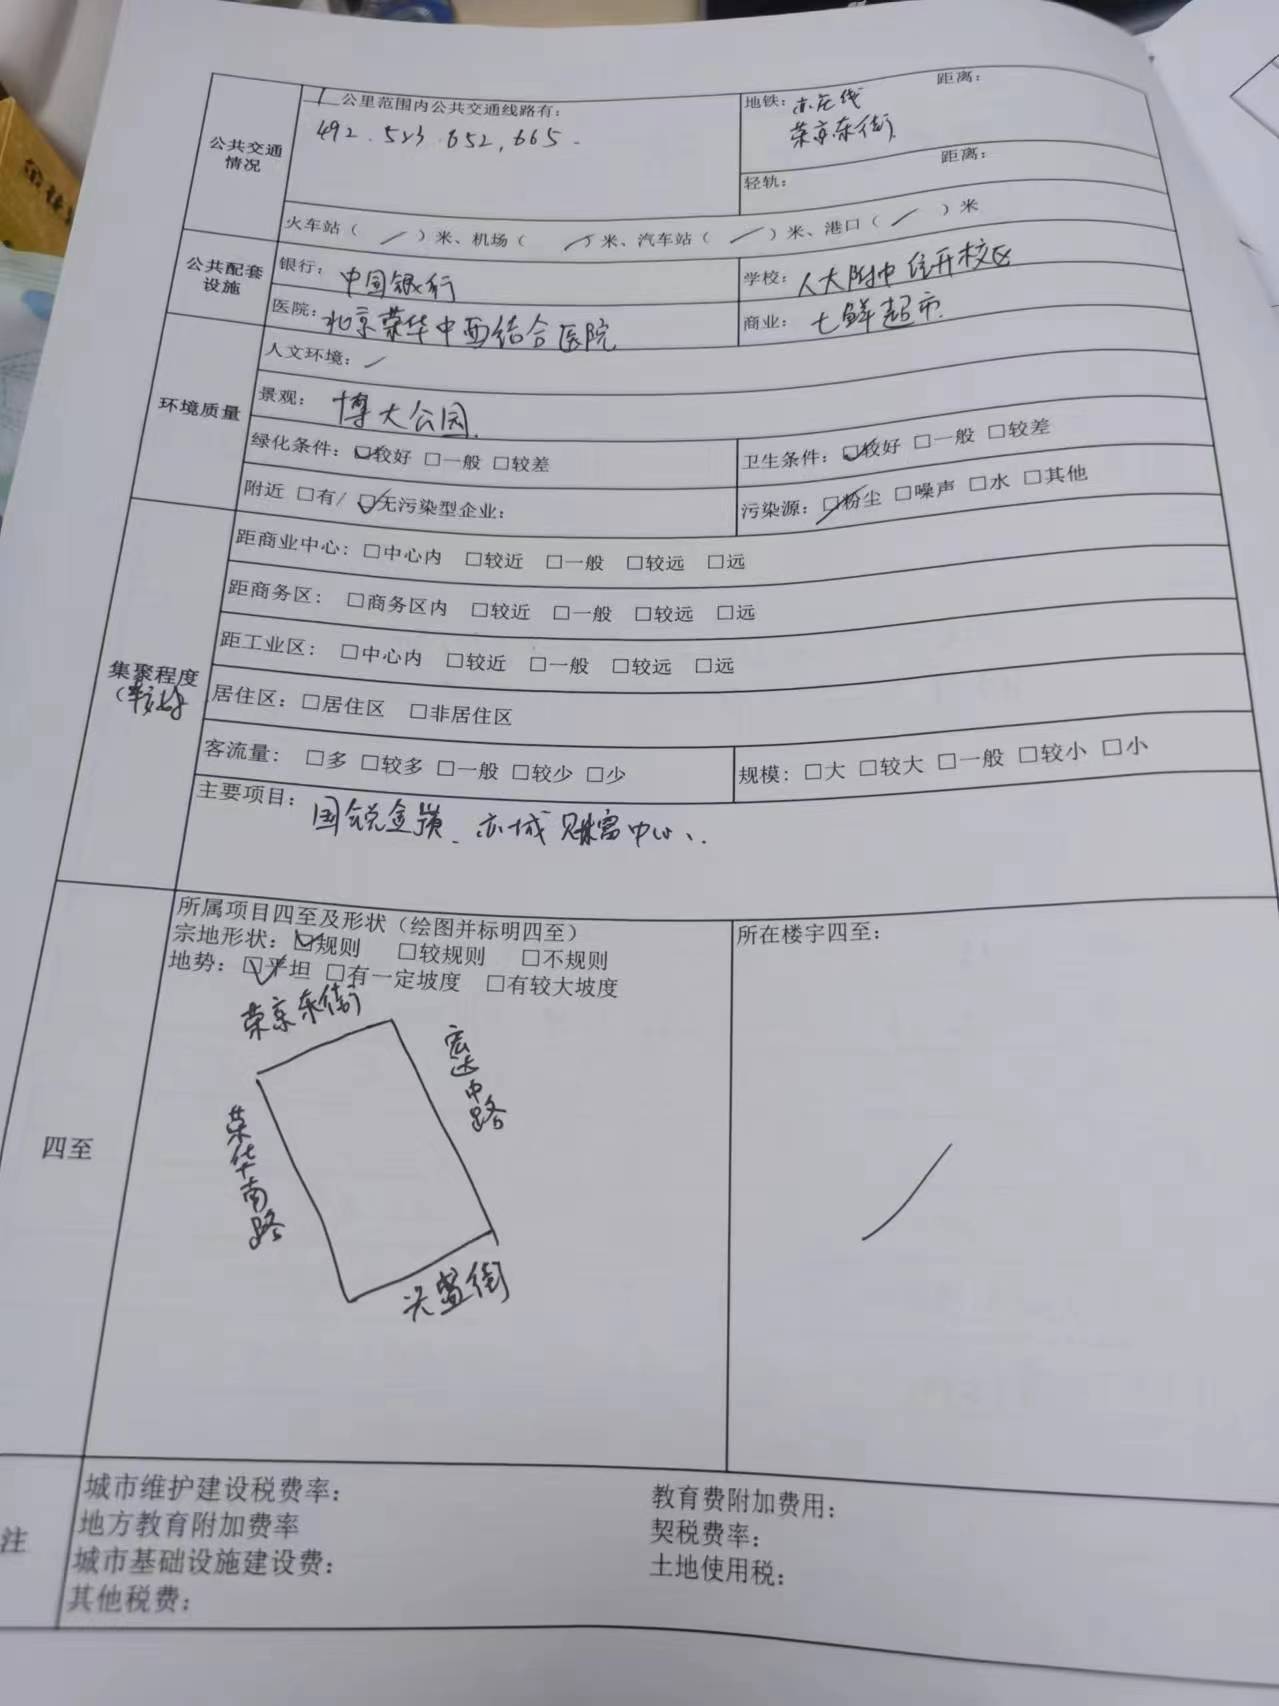 距离：
1 公里范围内公共交通线路有：
地铁：亦庄线
492．523．652，665．
荣京东街
公共交通
情况
距离：
轻轨：
火车站（ / ）米、机场（ / ）米、汽车站（ / ）米、港口（ / ）米
公共配套
设施
银行：中国银行
学校：人大附中经开校区
医院：北京荣华中西结合医院
商业：七鲜超市
人文环境：/
环境质量
景观：博大公园.
绿化条件：☑较好 □一般 □较差
卫生条件：☑较好 □一般 □较差
附近 □有/ ☑无污染型企业：
污染源：□粉尘 □噪声 □水 □其他
距商业中心：□中心内 □较近 □一般 □较远 □远
距商务区：□商务区内 □较近 □一般 □较远 □远
距工业区：□中心内 □较近 □一般 □较远 □远
集聚程度
（较好）
居住区：□居住区 □非居住区
客流量：□多 □较多 □一般 □较少 □少
规模：□大 □较大 □一般 □较小 □小
主要项目：国锐金嶺、亦城财富中心、.
所属项目四至及形状（绘图并标明四至）
宗地形状：☑规则 □较规则 □不规则
地势：☑平坦 □有一定坡度 □有较大坡度
所在楼宇四至：
荣京东街
宏达中路
荣华南路
四至
兴盛街
注
城市维护建设税费率：
教育费附加费用：
地方教育附加费率
契税费率：
城市基础设施建设费：
土地使用税：
其他税费：